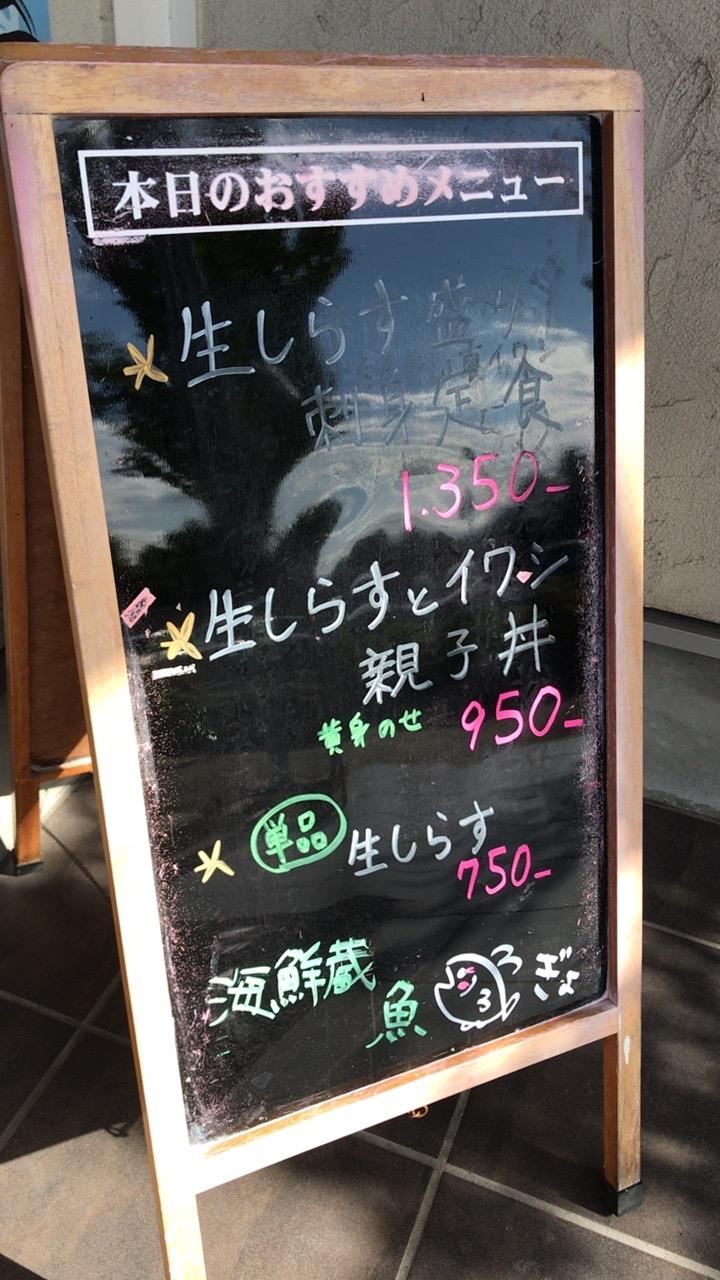 本日のおすすめメニュー
生しらす盛り
刺身定食
1.350-
生しらすとイワシ
親子丼
黄身のせ 950-
単品 生しらす
750-
海鮮蔵
魚 ぎょ